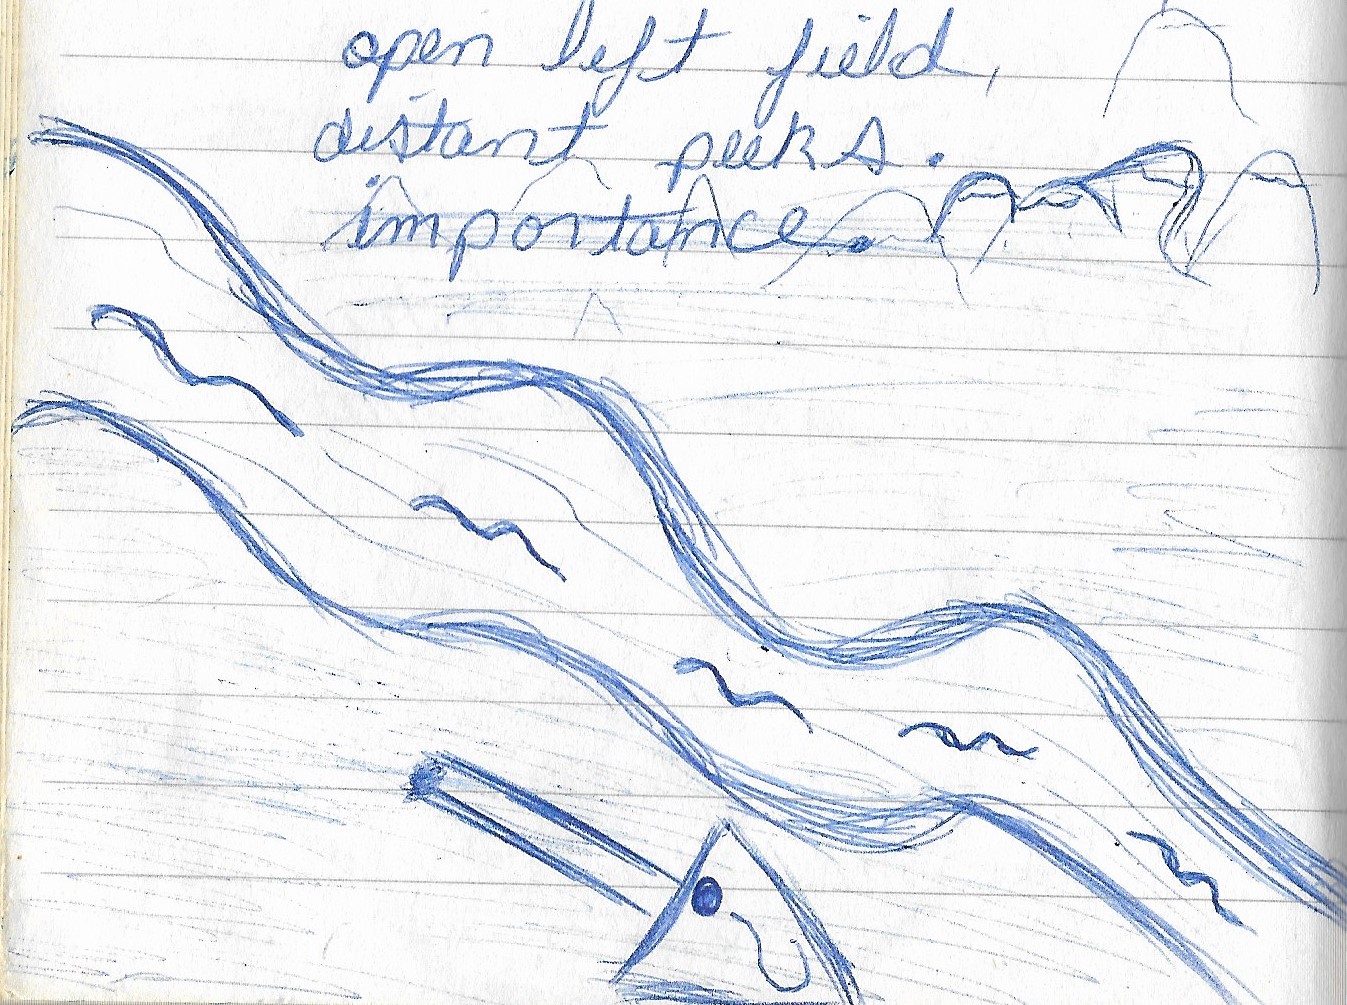 open left field,
distant peeks.
importance.